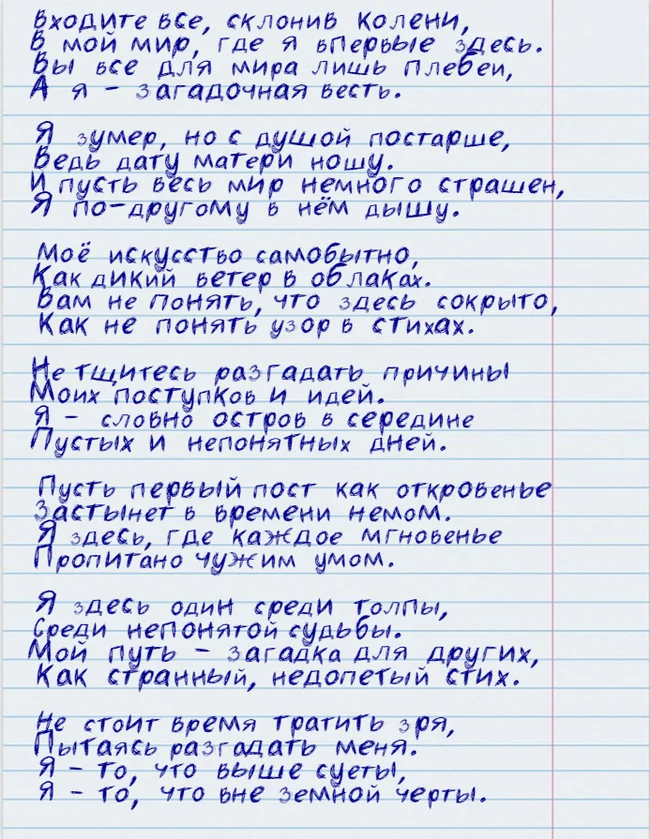 Входите все, склонив колени,
В мой мир, где я впервые здесь.
Вы все для мира лишь плебеи,
А я - загадочная весть.
Я зумер, но с душой постарше,
Ведь дату матери ношу.
И пусть весь мир немного страшен,
Я по-другому в нём дышу.
Моё искусство самобытно,
Как дикий ветер в облаках.
Вам не понять, что здесь сокрыто,
Как не понять узор в стихах.
Не тщитесь разгадать причины
Моих поступков и идей.
Я - словно остров в середине
Пустых и непонятных дней.
Пусть первый пост как откровенье
Застынет в времени немом.
Я здесь, где каждое мгновенье
Пропитано чужим умом.
Я здесь один среди толпы,
Среди непонятой судьбы.
Мой путь - загадка для других,
Как странный, недопетый стих.
Не стоит время тратить зря,
Пытаясь разгадать меня.
Я - то, что выше суеты,
Я - то, что вне земной черты.